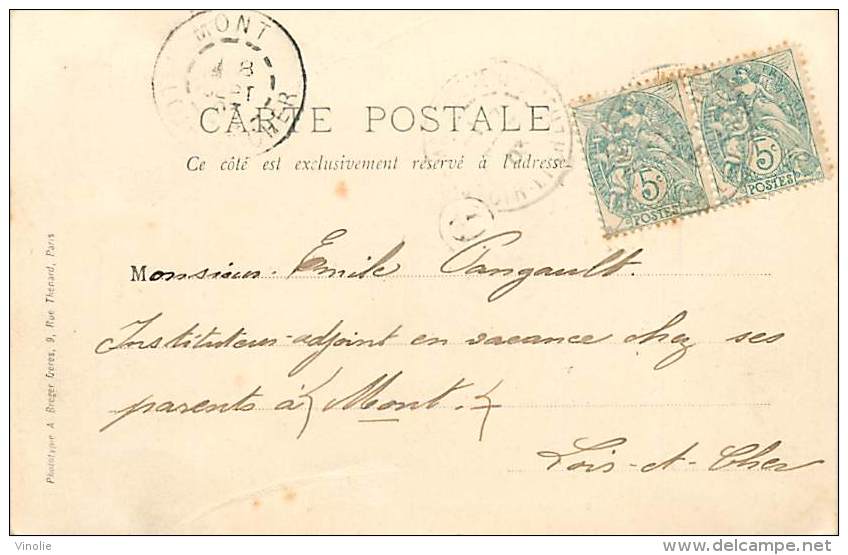 MONT
8
CHER
CARTE POSTALE
Ce côté est exclusivement réservé à l'adresse
5c 5c
POSTES POSTES
Monsieur Emile Pangault.
Instituteur-adjoint en vacance chez ses
parents à (Mont.)
Loir-et-Cher
Phototypie A. Breger frères, 9, Rue Thénard, Paris
Vinolie
delcampe.net